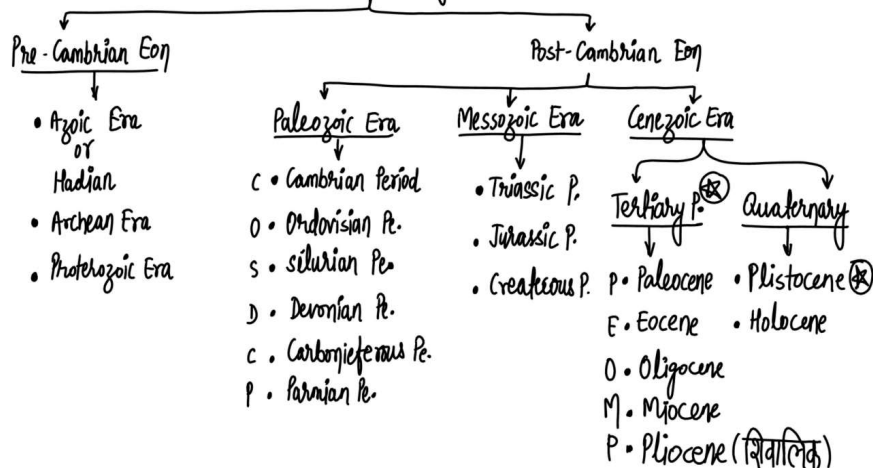 Pre-Cambrian Eon
Post-Cambrian Eon
• Azoic Era
or
Hadian
• Archean Era
• Proterozoic Era
Paleozoic Era
C • Cambrian Period
O • Ordovisian Pe.
S • Silurian Pe.
D • Devonian Pe.
C • Carbonieferous Pe.
P • Parmian Pe.
Messozoic Era
• Triassic P.
• Jurassic P.
• Createcous P.
Cenezoic Era
Tertiary P.
P • Paleocene
E • Eocene
O • Oligocene
M • Miocene
P • Pliocene (शिवालिक)
Quaternary
• Plistocene
• Holocene